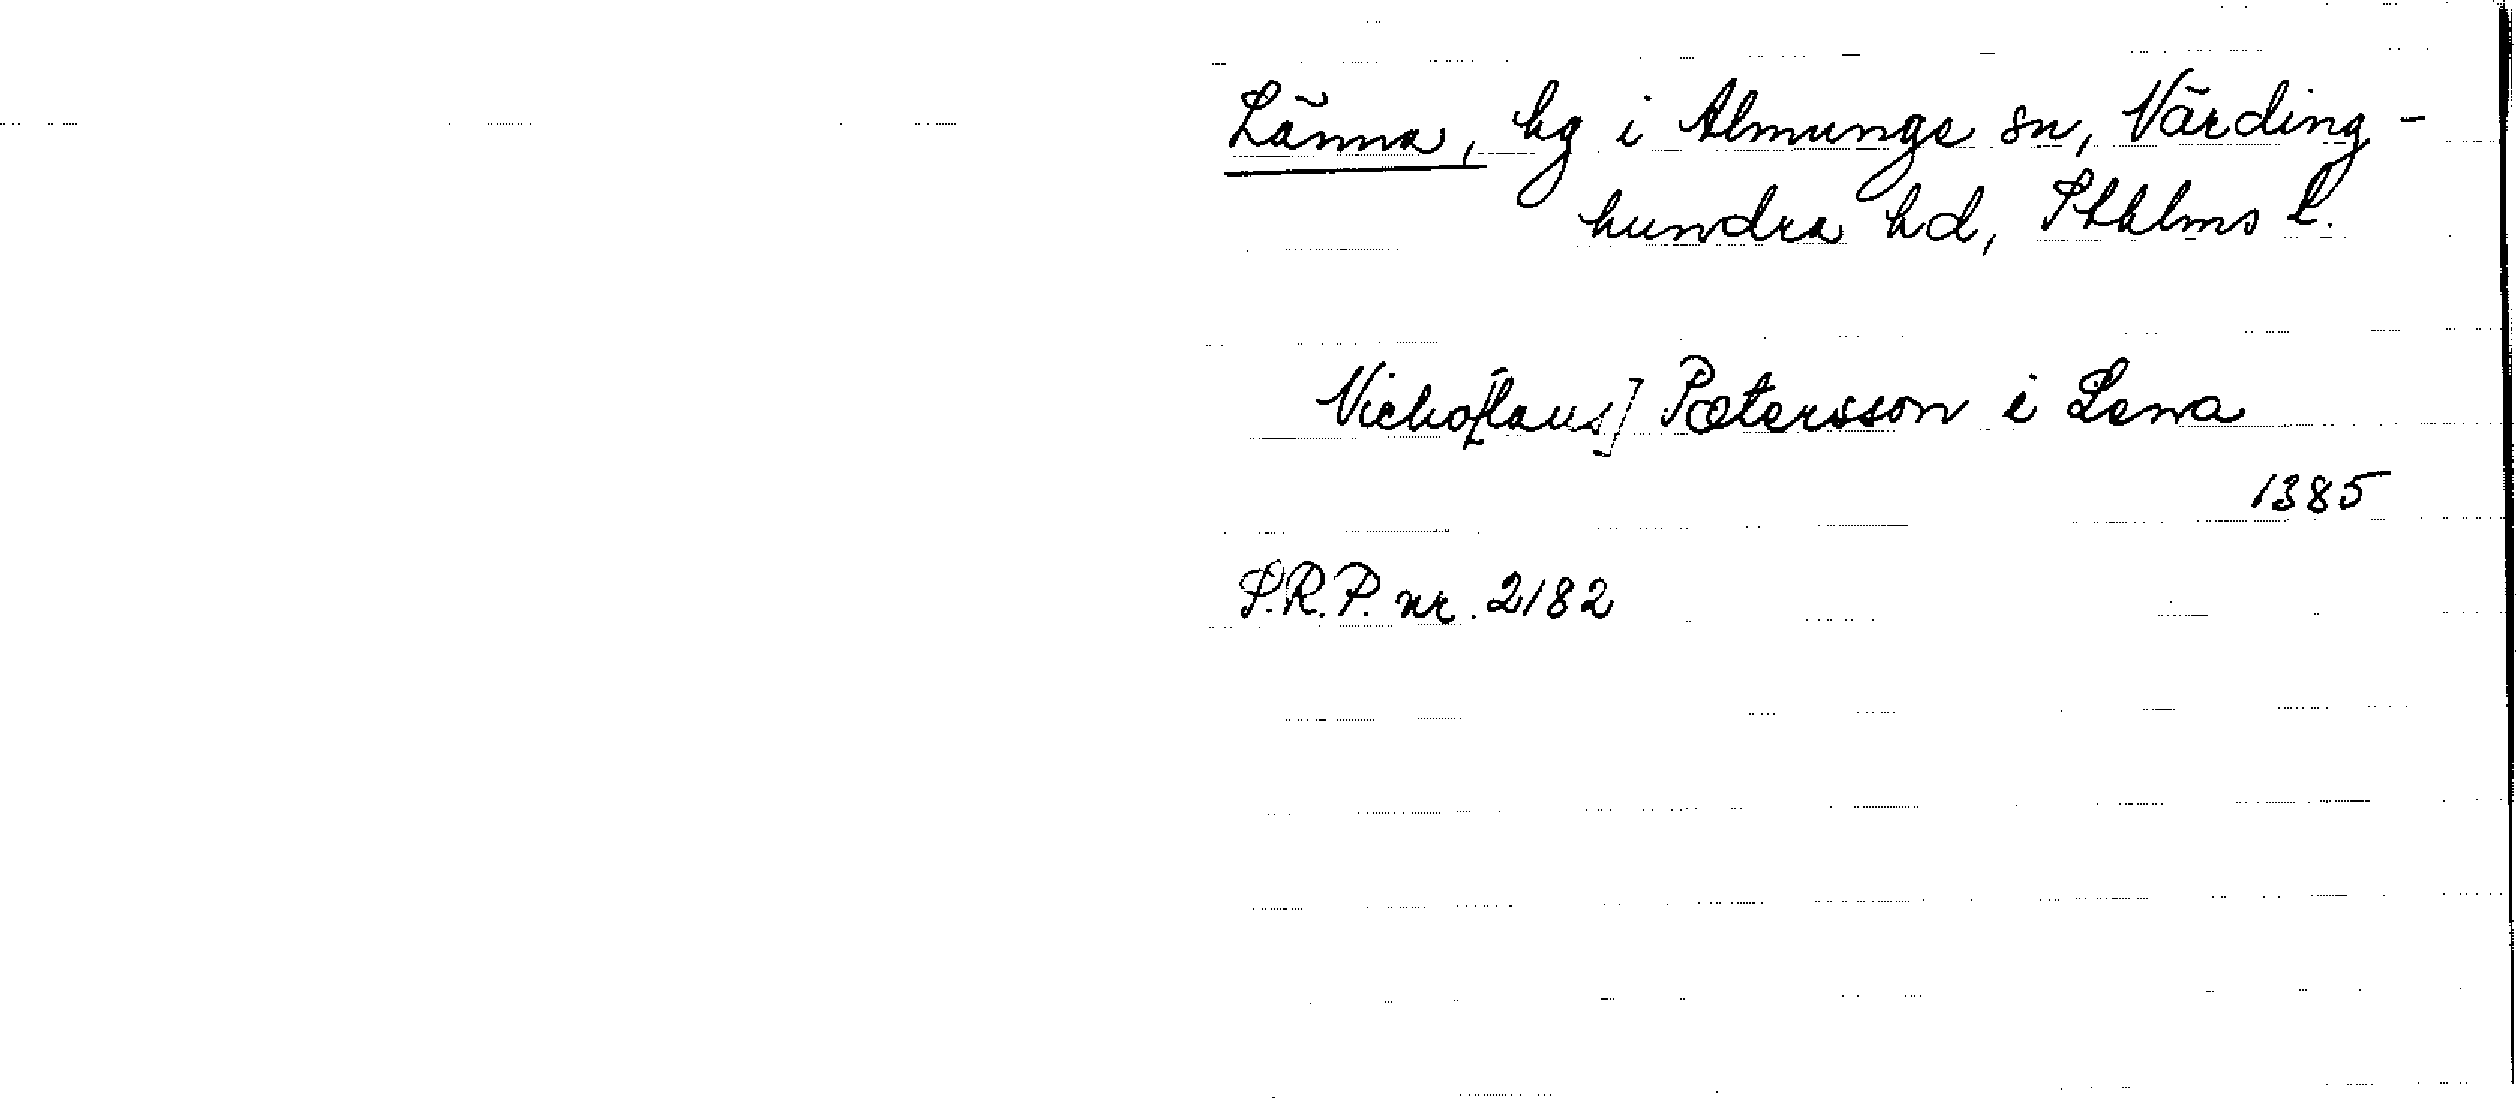 Länna, hg i Almunge sn, Närding-
hundra hd, Sthlms l.
Nicho[laus] Pætersson i Lena
1385
S.R.P. nr. 2182